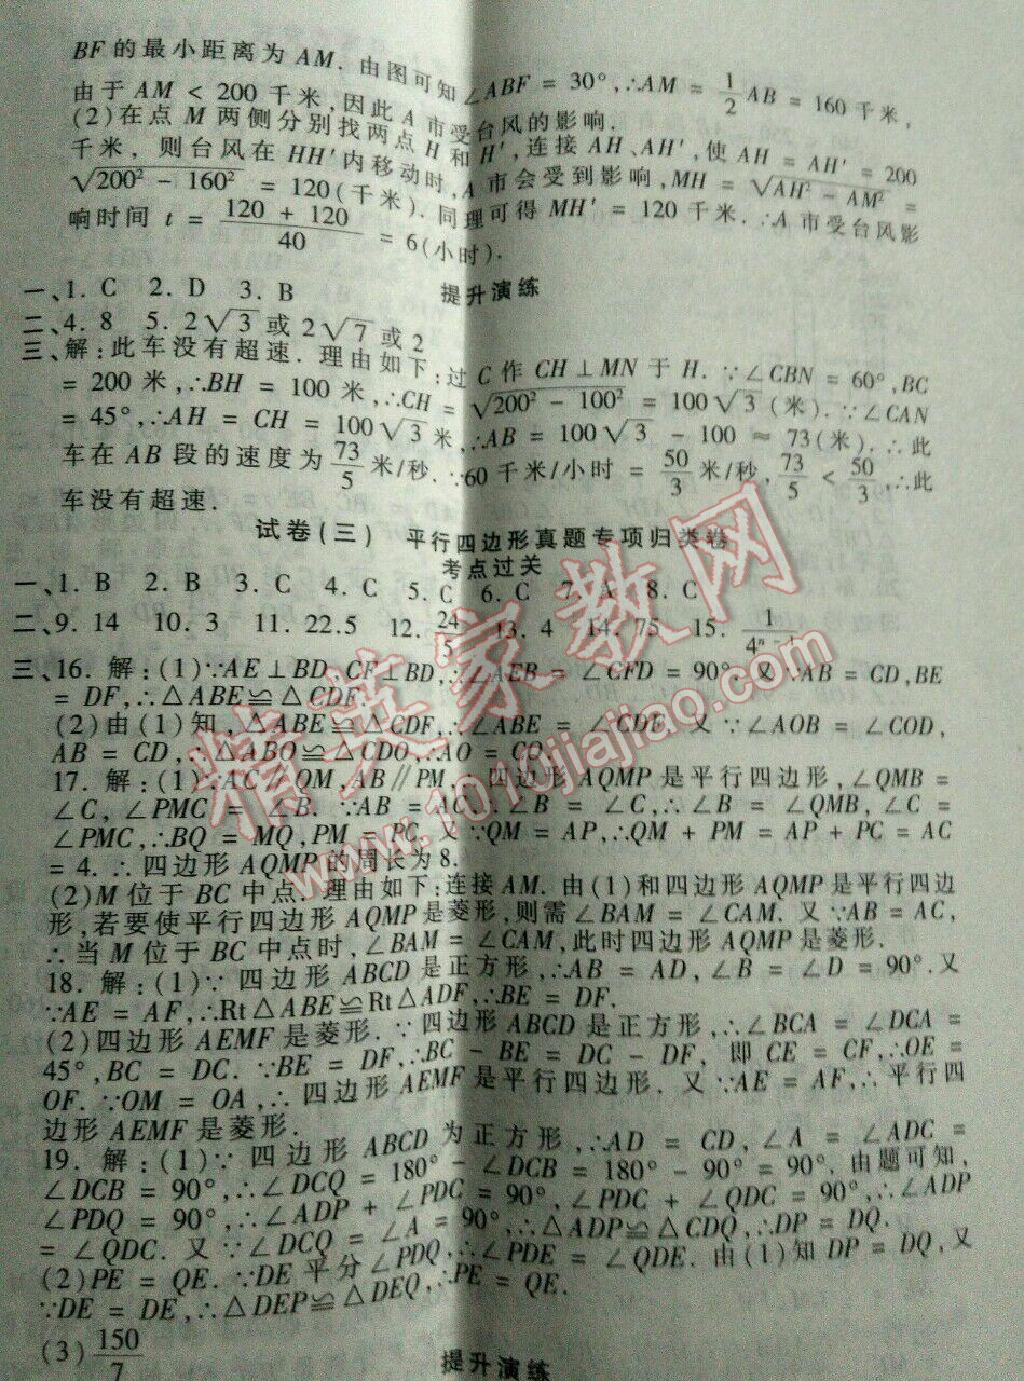 BF的最小距离为AM.由图可知∠ABF = 30°,∴AM = 1/2 AB = 160千米,
由于AM < 200千米,因此A市受台风的影响.
(2)在点M两侧分别找两点H和H′,连接AH、AH′,使AH = AH′ = 200
千米,则台风在HH′内移动时,A市会受到影响,MH = √(AH² - AM²) =
√(200² - 160²) = 120(千米).同理可得MH′ = 120千米.∴A市受台风影
响时间t = (120 + 120)/40 = 6(小时).
提升演练
一、1. C 2. D 3. B
二、4. 8 5. 2√3或2√7或2
三、解:此车没有超速.理由如下:过C作CH⊥MN于H.∵∠CBN = 60°,BC
= 200米,∴BH = 100米,∴CH = √(200² - 100²) = 100√3(米).∵∠CAN
= 45°,∴AH = CH = 100√3米,∴AB = 100√3 - 100 ≈ 73(米).∴此
车在AB段的速度为73/5米/秒.∵60千米/小时 = 50/3米/秒,73/5 < 50/3,∴此
车没有超速.
试卷(三) 平行四边形真题专项归类卷
考点过关
一、1. B 2. B 3. C 4. C 5. C 6. C 7. A 8. C
二、9. 14 10. 3 11. 22.5 12. 24/5 13. 4 14. 75 15.
三、16. 解:(1)∵AE⊥BD,CF⊥BD,∴∠AEB = ∠CFD = 90°.又∵AB = CD,BE
= DF,∴△ABE≌△CDF.
(2)由(1)知,△ABE≌△CDF,∴∠ABE = ∠CDF.又∵∠AOB = ∠COD,
AB = CD,∴△ABO≌△CDO,∴AO = CO.
17. 解:(1)∵AC∥QM,AB∥PM,∴四边形AQMP是平行四边形,∠QMB =
∠C,∠PMC = ∠B.∵AB = AC,∴∠B = ∠C,∴∠B = ∠QMB,∠C =
∠PMC,∴BQ = MQ,PM = PC.又∵QM = AP,∴QM + PM = AP + PC = AC
= 4.∴四边形AQMP的周长为8.
(2)M位于BC中点.理由如下:连接AM.由(1)和四边形AQMP是平行四边
形,若要使平行四边形AQMP是菱形,则需∠BAM = ∠CAM.又∵AB = AC,
∴当M位于BC中点时,∠BAM = ∠CAM,此时四边形AQMP是菱形.
18. 解:(1)∵四边形ABCD是正方形,∴AB = AD,∠B = ∠D = 90°.又
∵AE = AF,∴Rt△ABE≌Rt△ADF,∴BE = DF.
(2)四边形AEMF是菱形.∵四边形ABCD是正方形,∴∠BCA = ∠DCA =
45°,BC = DC.∵BE = DF,∴BC - BE = DC - DF,即CE = CF,∴OE =
OF.∵OM = OA,∴四边形AEMF是平行四边形.又∵AE = AF,∴平行四
边形AEMF是菱形.
19. 解:(1)∵四边形ABCD为正方形,∴AD = CD,∠A = ∠ADC =
∠DCB = 90°,∴∠DCQ = 180° - ∠DCB = 180° - 90° = 90°.由题可知,
∠PDQ = 90°,∴∠ADP + ∠PDC = 90°,∠PDC + ∠QDC = 90°,∴∠ADP
= ∠QDC.又∵∠DCQ = ∠A = 90°,∴△ADP≌△CDQ,∴DP = DQ.
(2)PE = QE.∵DE平分∠PDQ,∴∠PDE = ∠QDE.由(1)知DP = DQ,又
∵DE = DE,∴△DEP≌△DEQ,∴PE = QE.
(3)150/7
提升演练
精英家教网
www.1010jiajiao.com